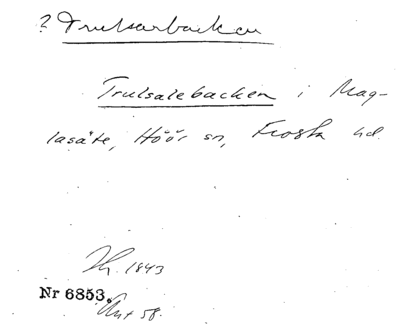 ? Trulsarbacken
Trulsalebacken i Mag-
lasäte, Höör sn, Frosta hd.
1843
Nr 6853.
58.